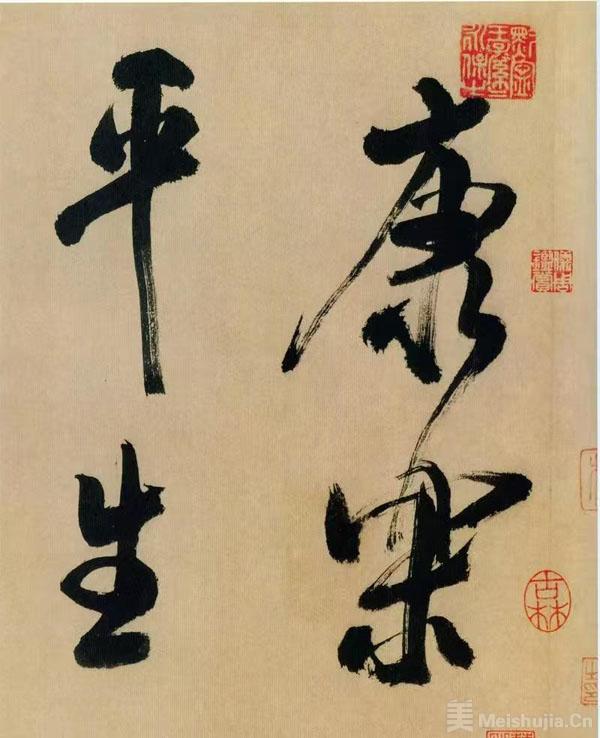 康樂
平生
古林
美 Meishujia.Cn